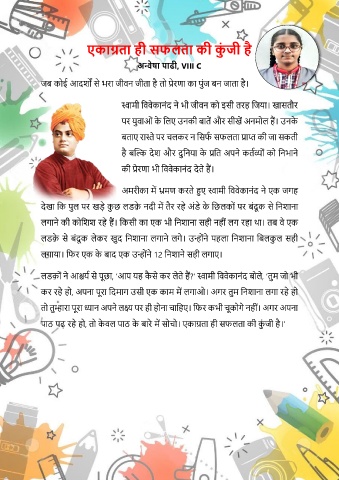 एकाग्रता ही सफलता की कुंजी है
अन्वेषा पाढी, VIII C
जब कोई आदर्शों से भरा जीवन जीता है तो प्रेरणा का पुंज बन जाता है।
स्वामी विवेकानंद ने भी जीवन को इसी तरह जिया। खासतौर
पर युवाओं के लिए उनकी बातें और सीखें अनमोल हैं। उनके
बताए रास्ते पर चलकर न सिर्फ सफलता प्राप्त की जा सकती
है बल्कि देश और दुनिया के प्रति अपने कर्तव्यों को निभाने
की प्रेरणा भी विवेकानंद देते हैं।
अमरीका में भ्रमण करते हुए स्वामी विवेकानंद ने एक जगह
देखा कि पुल पर खड़े कुछ लडक़े नदी में तैर रहे अंडे के छिलकों पर बंदूक से निशाना
लगाने की कोशिश रहे हैं। किसी का एक भी निशाना सही नहीं लग रहा था। तब वे एक
लडक़े से बंदूक लेकर खुद निशाना लगाने लगे। उन्होंने पहला निशाना बिलकुल सही
लगाया। फिर एक के बाद एक उन्होंने 12 निशाने सही लगाए।
लडक़ों ने आश्चर्य से पूछा, 'आप यह कैसे कर लेते हैं?' स्वामी विवेकानंद बोले, 'तुम जो भी
कर रहे हो, अपना पूरा दिमाग उसी एक काम में लगाओ। अगर तुम निशाना लगा रहे हो
तो तुम्हारा पूरा ध्यान अपने लक्ष्य पर ही होना चाहिए। फिर कभी चूकोगे नहीं। अगर अपना
पाठ पढ़ रहे हो, तो केवल पाठ के बारे में सोचो। एकाग्रता ही सफलता की कुंजी है।'